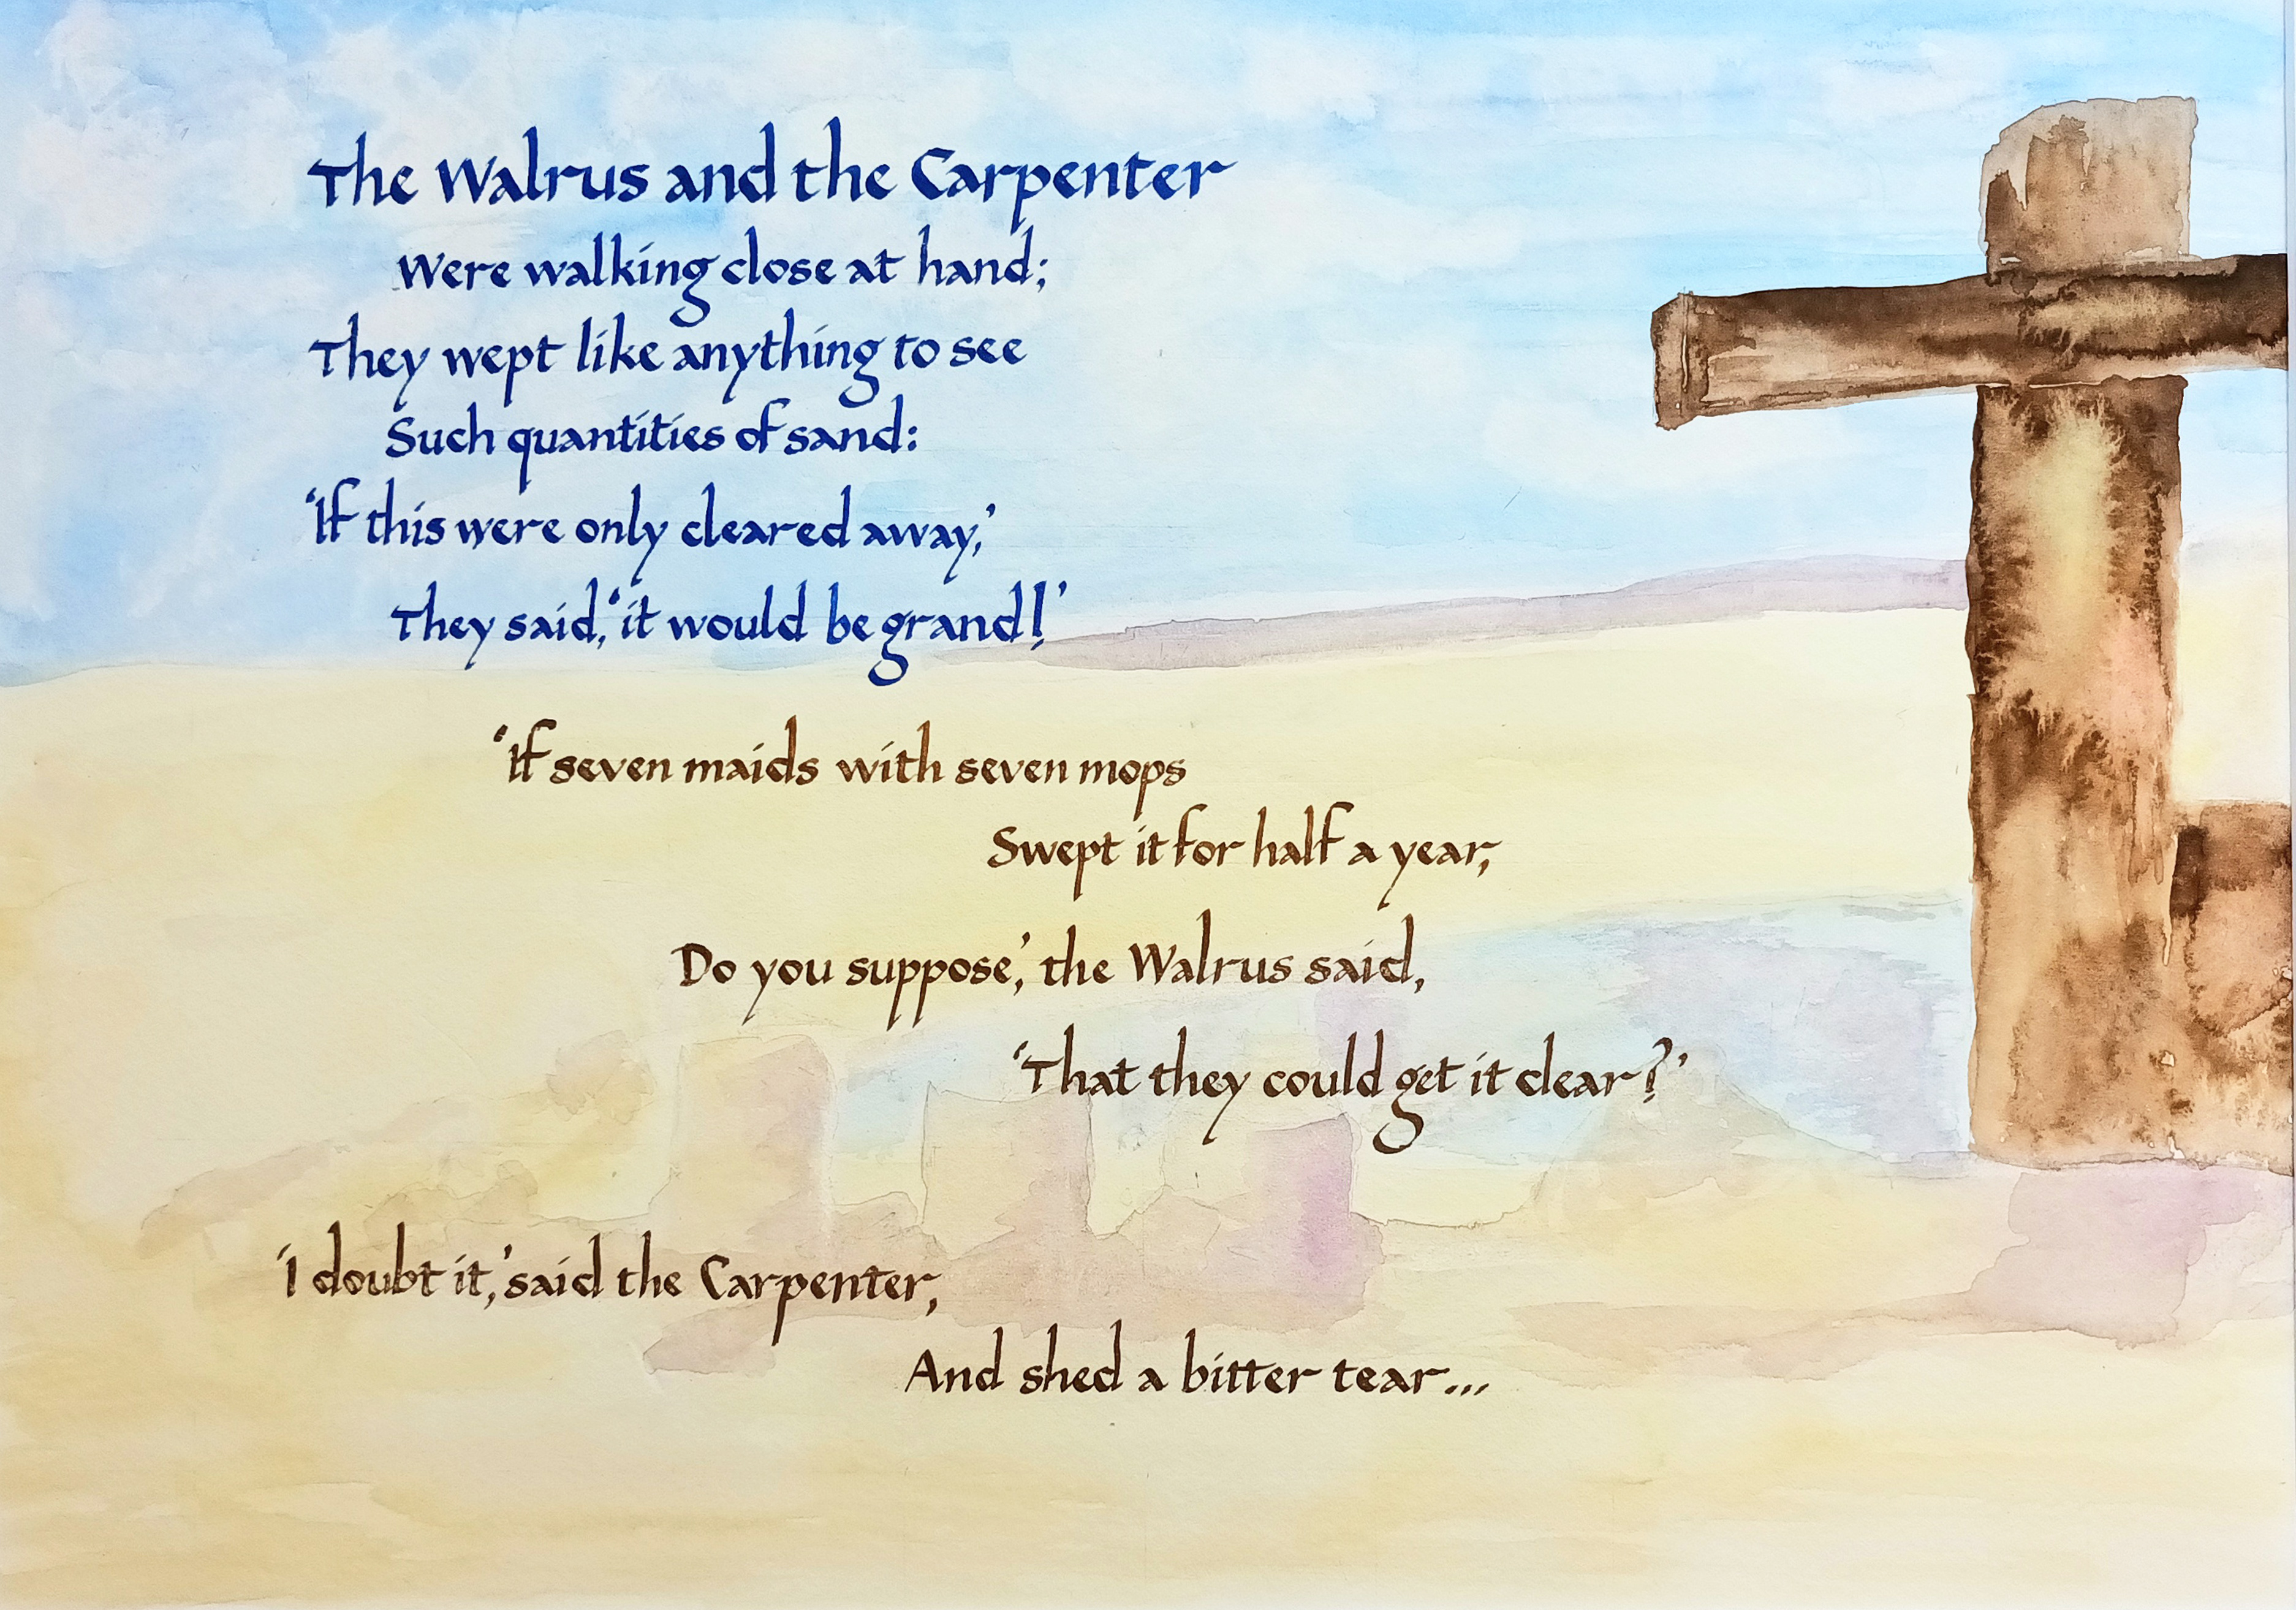 The Walrus and the Carpenter
Were walking close at hand;
They wept like anything to see
Such quantities of sand:
‘If this were only cleared away,’
They said, ‘it would be grand!’
‘If seven maids with seven mops
Swept it for half a year,
Do you suppose,’ the Walrus said,
‘That they could get it clear?’
‘I doubt it,’ said the Carpenter,
And shed a bitter tear...